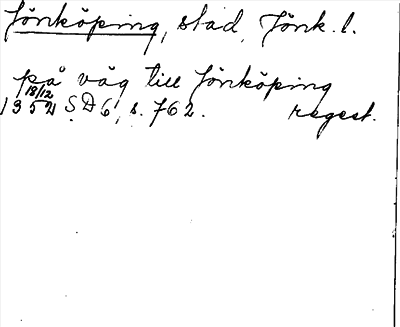 Jönköping, stad, Jönk. l.
på väg till Jönköping
18/12
1352 SD 6, s. 762. regest.